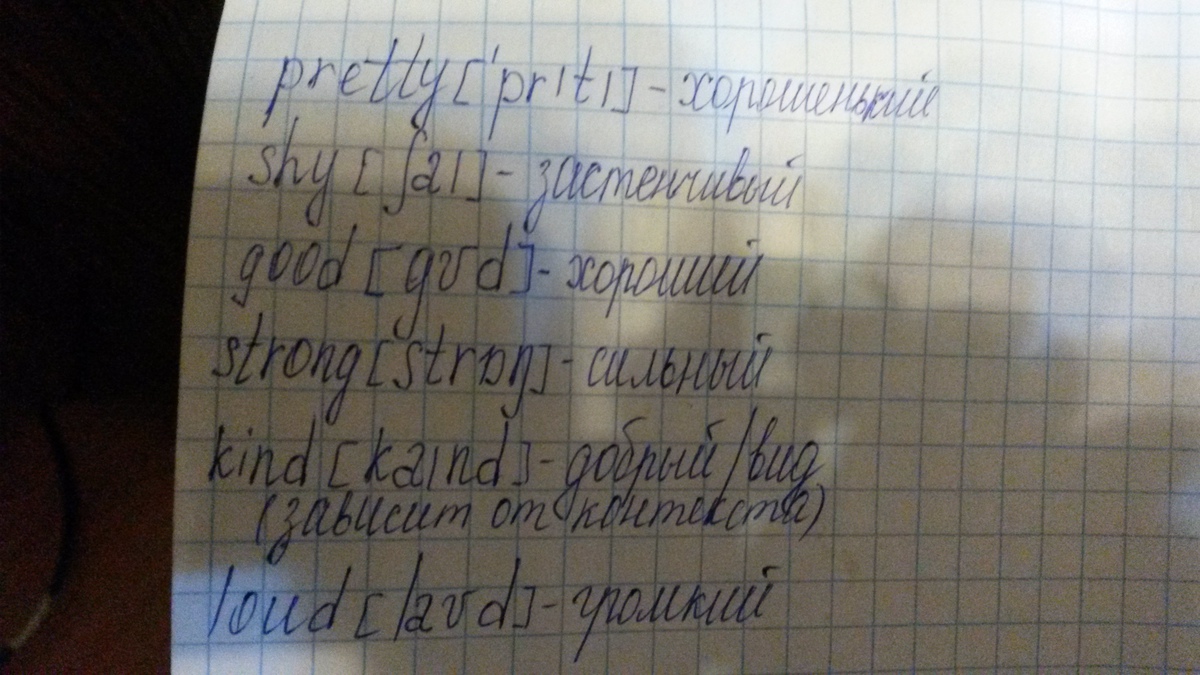 pretty ['prɪtɪ] - хорошенький
shy [ʃaɪ] - застенчивый
good [gʊd] - хороший
strong [strɒŋ] - сильный
kind [kaɪnd] - добрый/вид
(зависит от контекста)
loud [laʊd] - громкий